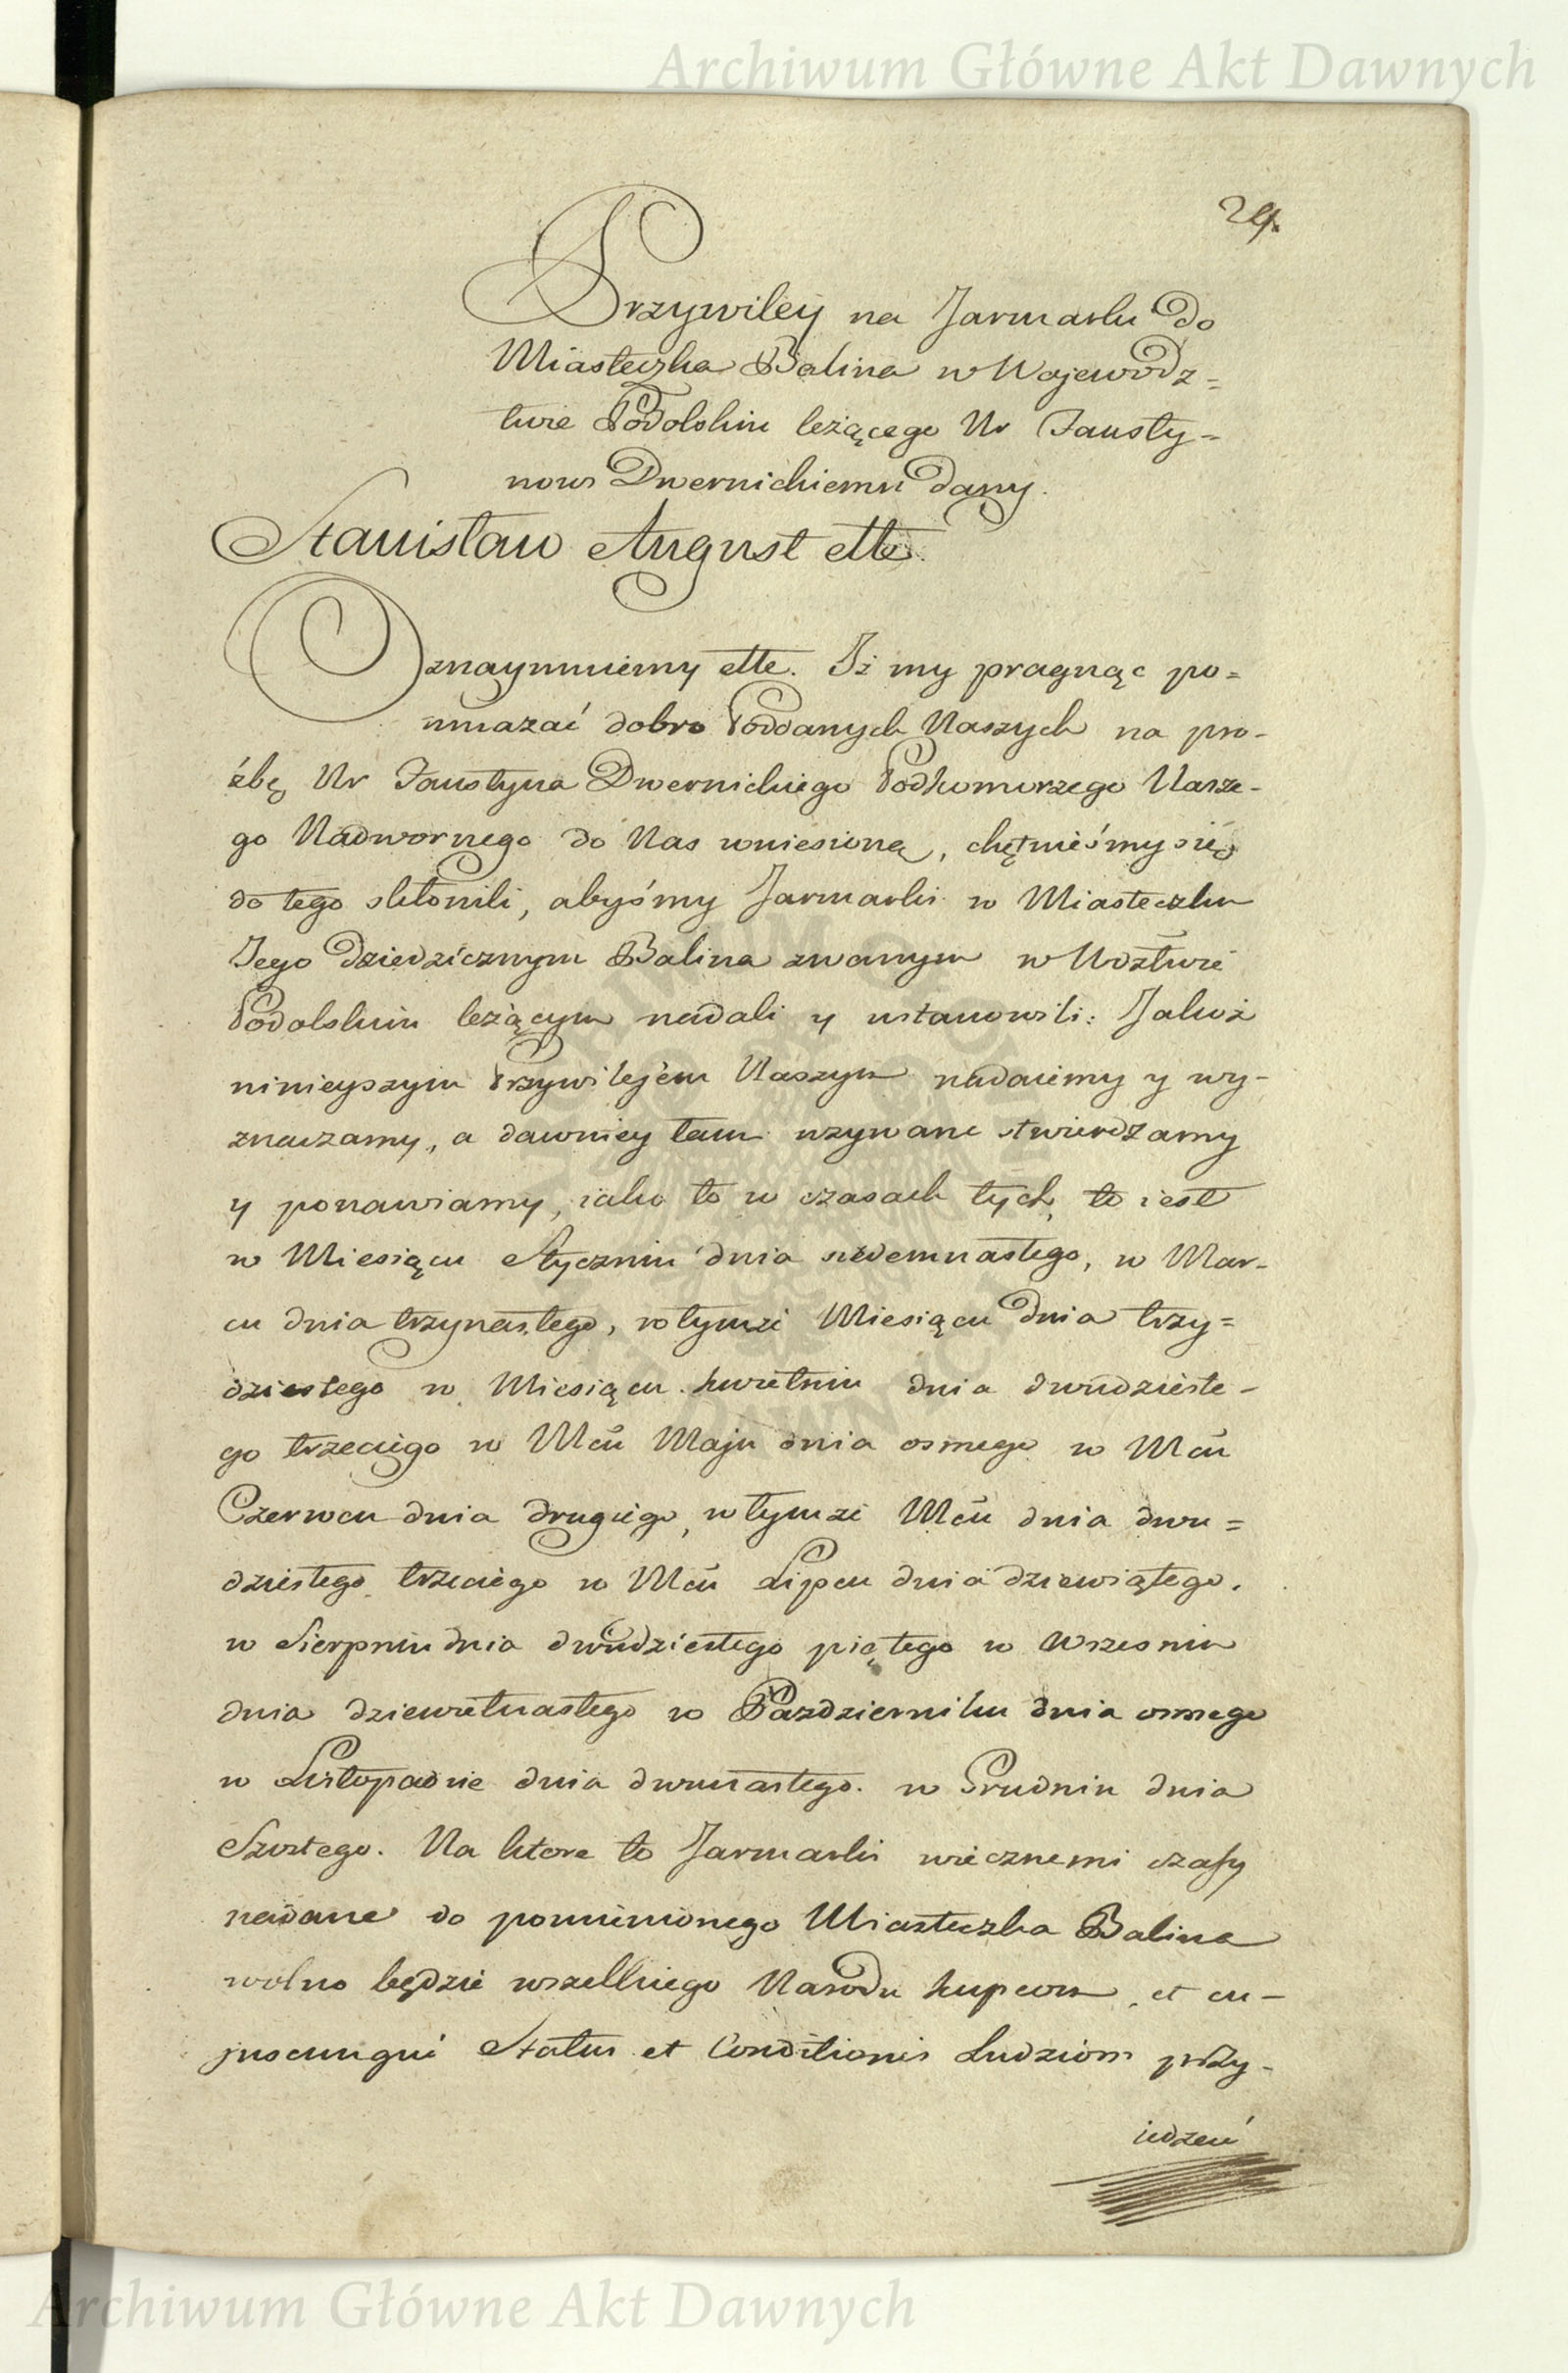 Archiwum Główne Akt Dawnych
29.
Przywiley na Jarmarki do
Miasteczka Balina w Wojewodz=
twie Podolskim leżącego Ur Fausty=
nowi Dwernickiemu dany.
Stanisław August ettc.
Oznaymuiemy ettc. Iż my pragnąc po=
mnażać dobro Poddanych Naszych na pro-
źbę Ur Faustyna Dwernickiego Podkomorzego Nasze-
go Nadwornego do Nas wniesioną, chętnieśmy się
do tego skłonili, abyśmy Jarmarki w Miasteczku
Jego dziedzicznym Balina zwanym w Wdztwie
Podolskim leżącym nadali y ustanowili: Jakoż
ninieyszym Przywilejem Naszym nadaiemy y wy-
znaczamy, a dawniey tam uzywane stwierdzamy
y ponawiamy, iako to w czasach tych, to iest
w Miesiącu Styczniu dnia siedemnastego, w Mar-
cu dnia trzynastego, w tymże Miesiącu dnia trzy=
dziestego w Miesiącu kwietniu dnia dwudzieste-
go trzeciego w Mcu Maju dnia osmego w Mcu
Czerwcu dnia drugiego, w tymze Mcu dnia dwu=
dziestego trzeciego w Mcu Lipcu dnia dziewiątego,
w Sierpniu dnia dwudziestego piątego w Wrzesniu
dnia dziewietnastego w Pazdzierniku dnia osmego
w Listopadzie dnia dwunastego. w Grudniu dnia
Szostego. Na ktore to Jarmarki wiecznemi czasy
nadane do pomienionego Miasteczka Balina
wolno będzie wszelkiego Narodu kupcom, et cu-
juscunque Status et Conditionis Ludziom przy-
iedzać
Archiwum Główne Akt Dawnych